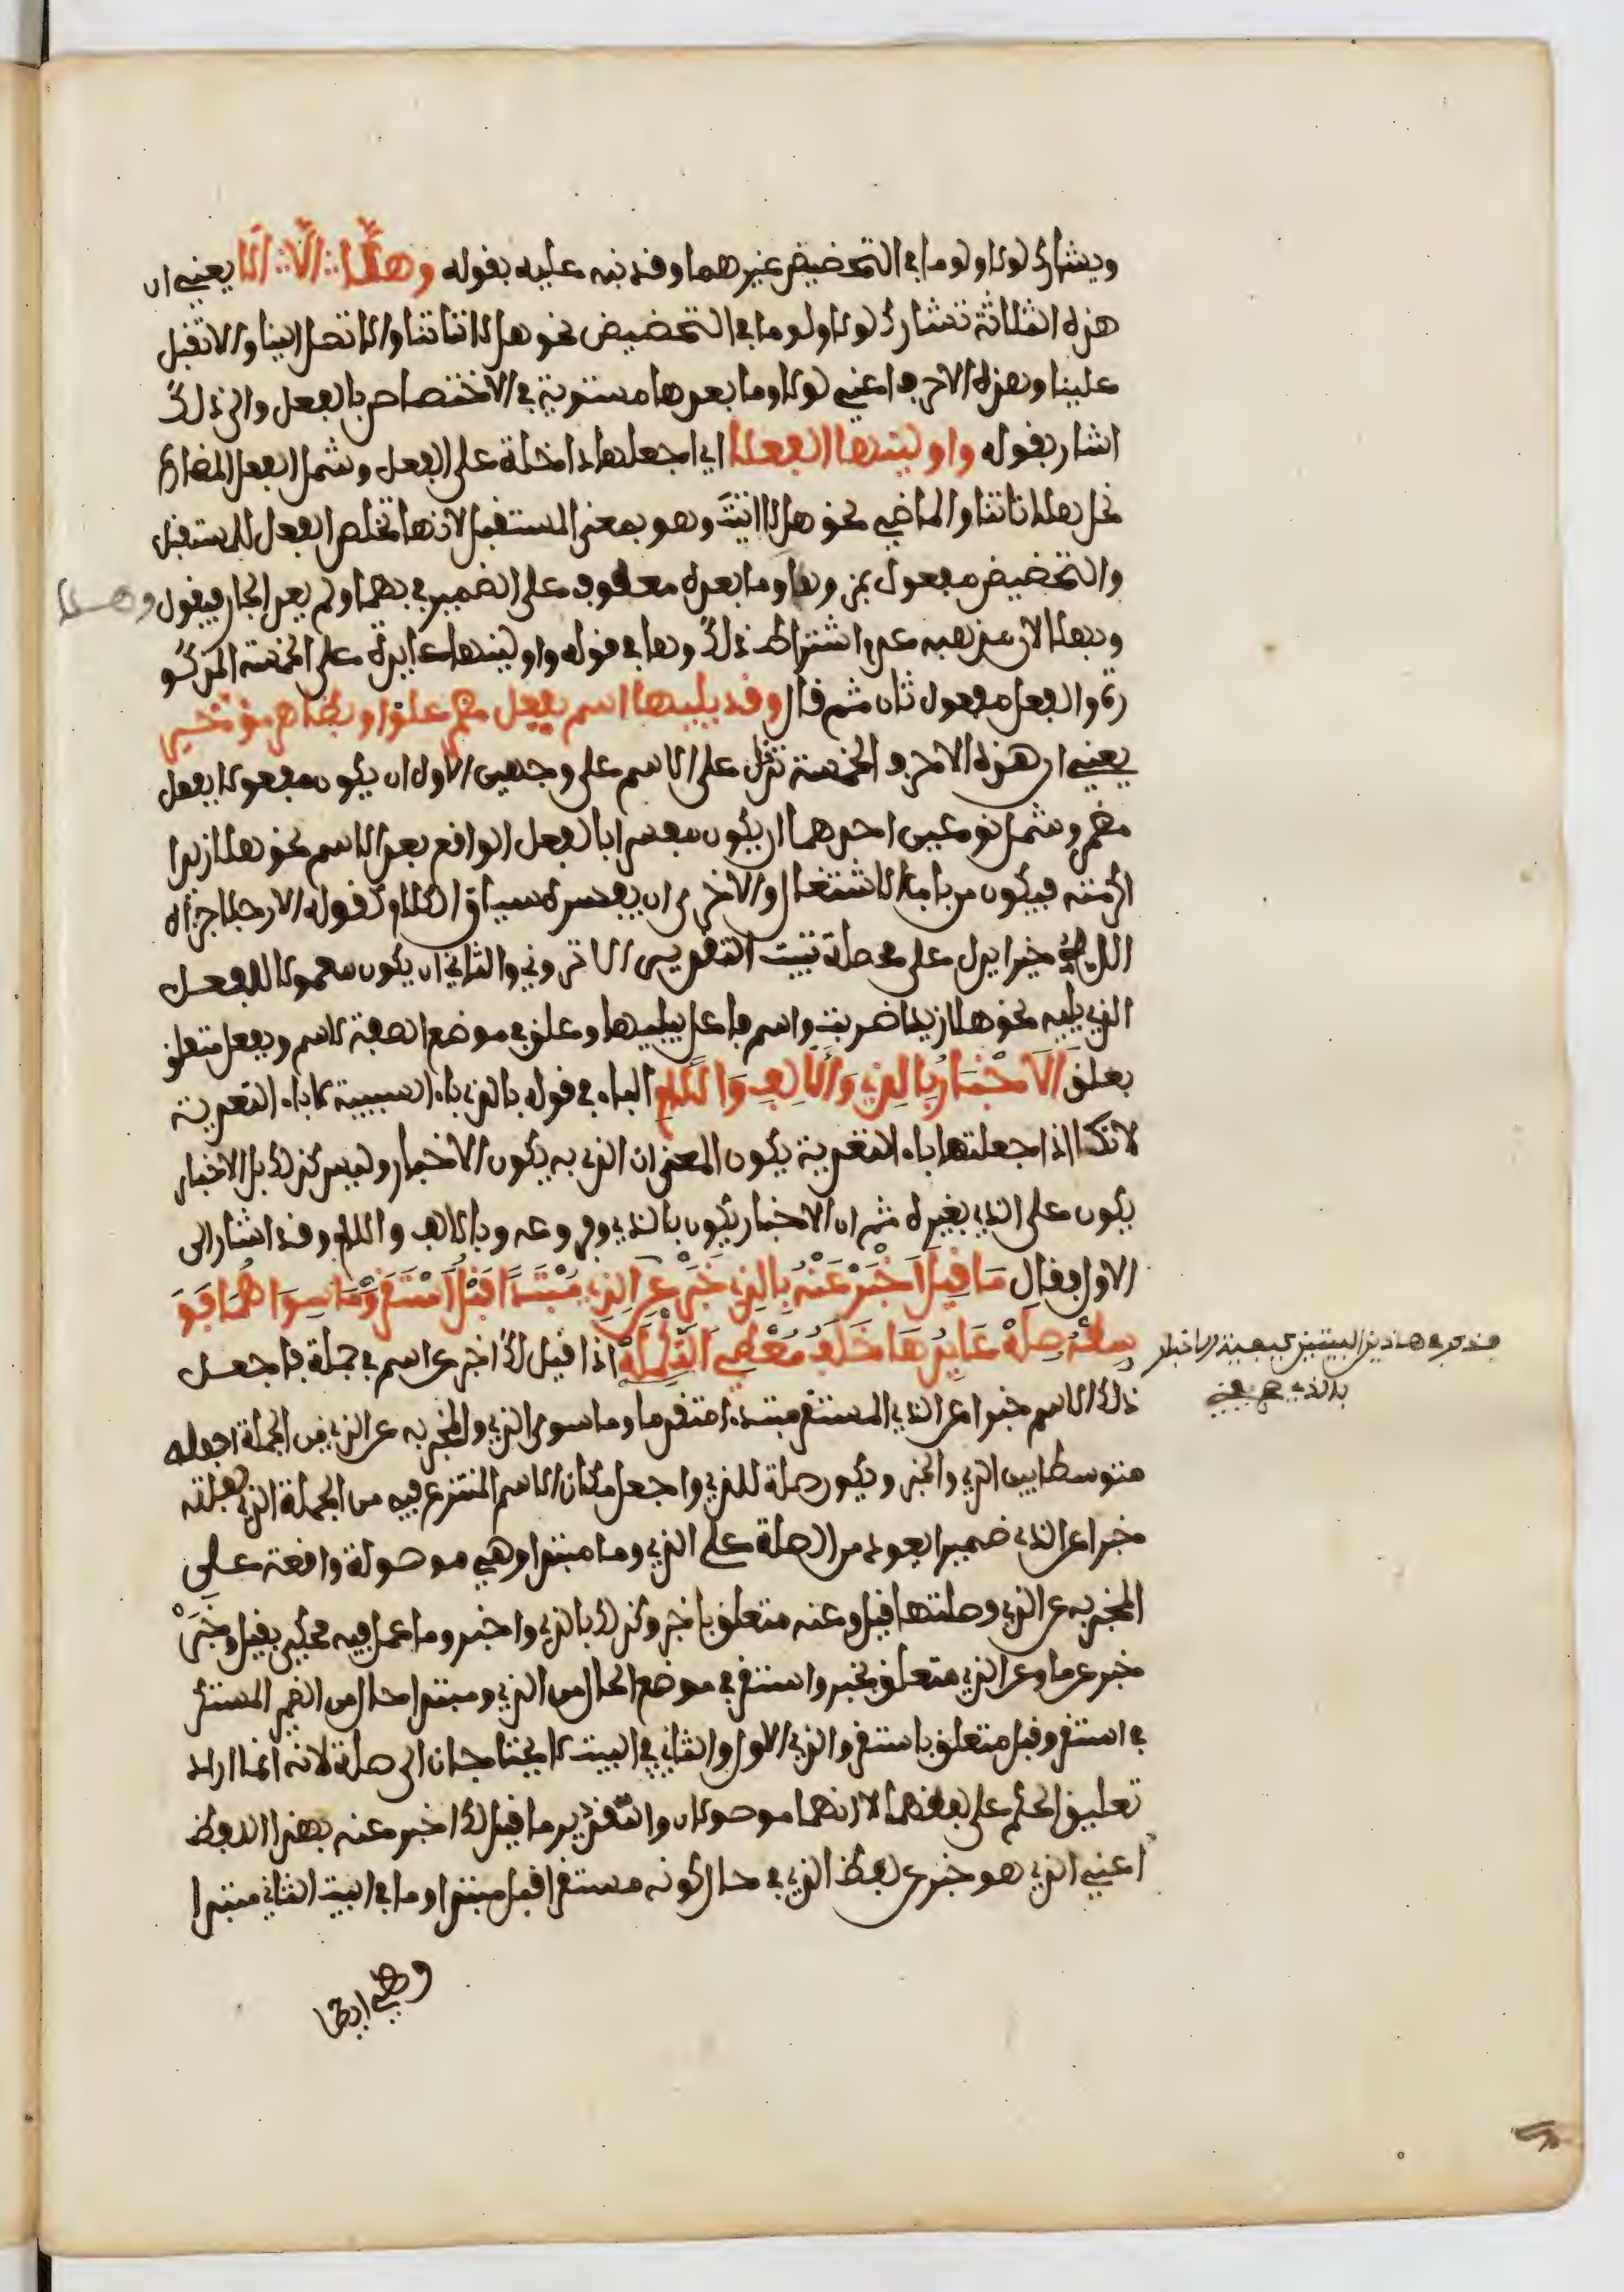 ويشارك لولا ولوما في التحضيض غيرهما وقد نبه عليه بقوله وهلّا ألّا ألا يعني ان
هذه الثلاثة تشارك لولا ولوما في التحضيض نحو هلا تاتنا والا تحل الينا والا تقبل
علينا وهذه الاحرف اعني لولا وما بعدها مستوية في الاختصاص بالفعل والى ذلك
اشار بقوله واولينها الفعلا اي اجعلها داخلة على الفعل وشمل الفعل المضارع
نحو هلا تاتنا والماضي نحو هلا اتيت وهو بمعنى المستقبل لانها تخلص الفعل للمستقبل
والتحضيض مفعول بمز وهلا وما بعده معطوف على الضمير في بهما ولم يعد الجار فيقول وبهلا
وبهلا لان مذهبه عدم اشتراط ذلك وها في قوله واولينها عايدة على الخمسة المذكو
رة والفعل مفعول ثان ثم قال وقد يليها اسم بفعل مضمر علق او بظاهر مؤخر
يعني ان هذه الاحرف الخمسة تدخل على الاسم على وجهين الاول ان يكون مفعولا بفعل
مضمر وشمل نوعين احدهما ان يكون مفسرا بالفعل الواقع بعد الاسم نحو هلا زيدا
اكرمته فيكون من باب الاشتغال والاخرى ان يفسره سياق الكلام كقوله الا رجلا جزاه
الله خيرا يدل على محصلة تبيت التقدير الا تروني والثاني ان يكون معمولا للفعل
الذي يليه نحو هلا زيدا ضربت واسم فاعل يليها وعلق في موضع الصفة لاسم وبفعل متعلق
بعلق الاخبار بالذي والالف واللام الباء في قوله بالذي باء السببية لا باء التعدية
لانك اذا جعلتها باء التعدية يكون المعنى ان الذي به يكون الاخبار وليس كذلك بل الاخبار
يكون على الذي بغيره ثم ان الاخبار يكون بالذي وفروعه وبالالف واللام وقد اشار الى
الاول فقال ما قيل اخبر عنه بالذي خبر عن الذي مبتدا قبل استقر وما سواهما فو
سطه صلة عايدها خلف معطي التكملة اذا قيل لك اخبر عن اسم في جملة فاجعل
ذلك الاسم خبرا عن الذي المستقر مبتدء متقدما وما سوى الذي والمخبر به عن الذي من الجملة اجعله
متوسطا بين الذي والخبر ويكون صلة للذي واجعل مكان الاسم المنتزع فيه من الجملة الذي جعلته
خبرا عن الذي ضميرا يعود من الصلة على الذي وما مبتدا وهي موصولة واقعة على
المخبر به عن الذي وصلتها قيل وعنه متعلق باخبر وكذلك بالذي واخبر وما عمل فيه محكي بقيل وخبر
خبر عن ما وعن الذي متعلق بخبر واستقر في موضع الحال من الذي ومبتدا حال من الضمير المستتر
في استقر وقبل متعلق باستقر والذي الاول والثاني في البيت لا يحتاجان الى صلة لانه انما اراد
تعليق الحكم على لفظهما لا انهما موصولان والتقدير ما قيل لك اخبر عنه بهذا اللفظ
اعني الذي هو خبر عن لفظ الذي في حال كونه مستقرا قبل مبتدا وما في البيت الثاني مبتدا
وهي ايضا